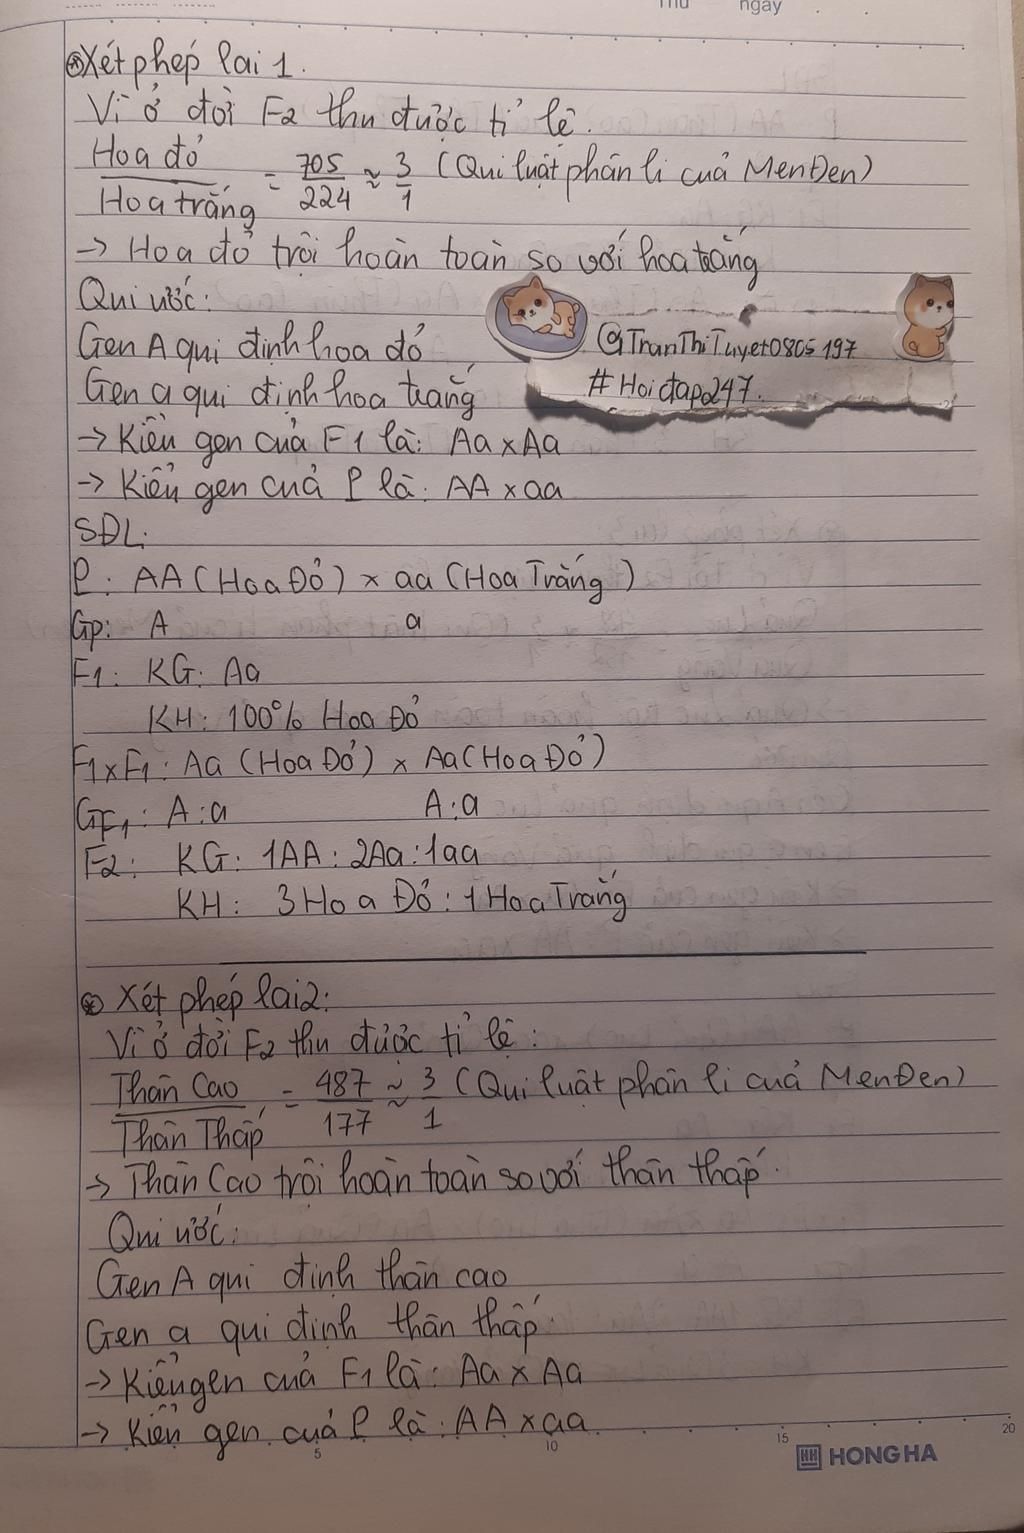 Thứ ngày
⊛ Xét phép lai 1.
Vì ở đời F2 thu được tỉ lệ.
Hoa đỏ / Hoa trắng = 705 / 224 ≈ 3 / 1 (Qui luật phân li cuả MenĐen)
-> Hoa đỏ trội hoàn toàn so với hoa trắng
Qui ước:
Gen A qui định hoa đỏ
@TranThiTuyet0805197
Gen a qui định hoa trắng
#Hoidap247.
-> Kiểu gen cuả F1 là: Aa x Aa
-> Kiểu gen cuả P là: AA x aa
SĐL:
P: AA (Hoa Đỏ) x aa (Hoa Trắng)
Gp: A a
F1: KG: Aa
KH: 100% Hoa Đỏ
F1xF1: Aa (Hoa Đỏ) x Aa (Hoa Đỏ)
GF1: A:a A:a
F2: KG: 1AA : 2Aa : 1aa
KH: 3 Hoa Đỏ : 1 Hoa Trắng
⊛ Xét phép lai 2:
Vì ở đời F2 thu được tỉ lệ:
Thân Cao / Thân Thấp = 487 / 177 ≈ 3 / 1 (Qui luật phân li cuả MenĐen)
-> Thân Cao trội hoàn toàn so với thân thấp.
Qui ước:
Gen A qui định thân cao
Gen a qui định thân thấp
-> Kiểu gen cuả F1 là: Aa x Aa
-> Kiểu gen cuả P là: AA x aa
5 10 15 20
HH HONG HA